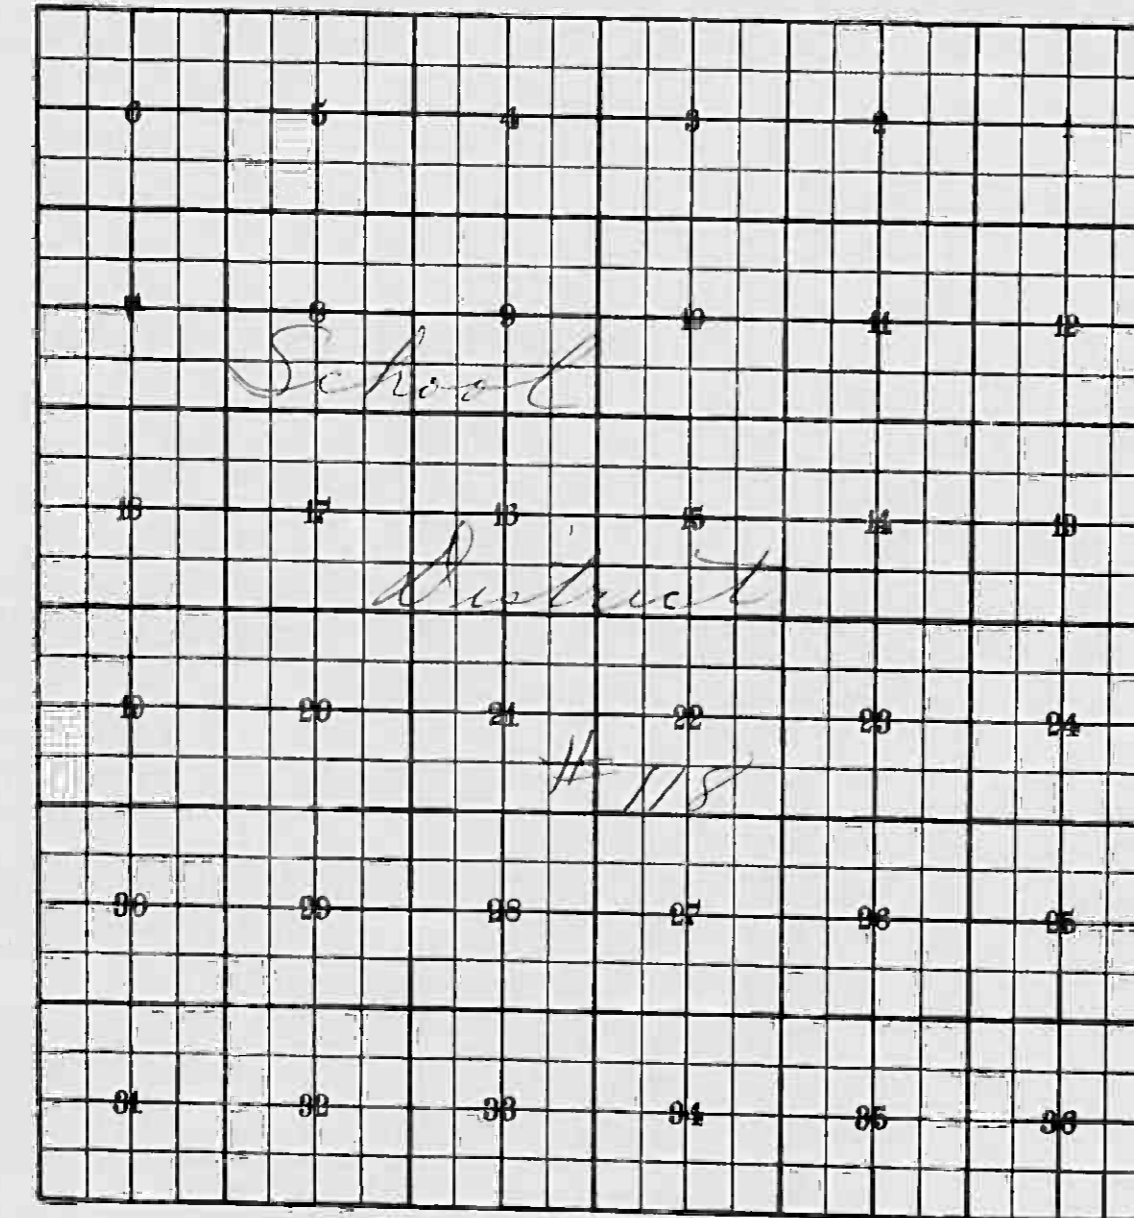 6 5 4 3 2 1
7 8 9 10 11 12
School
18 17 16 15 14 13
District
19 20 21 22 23 24
# 118
30 29 28 27 26 25
31 32 33 34 35 36